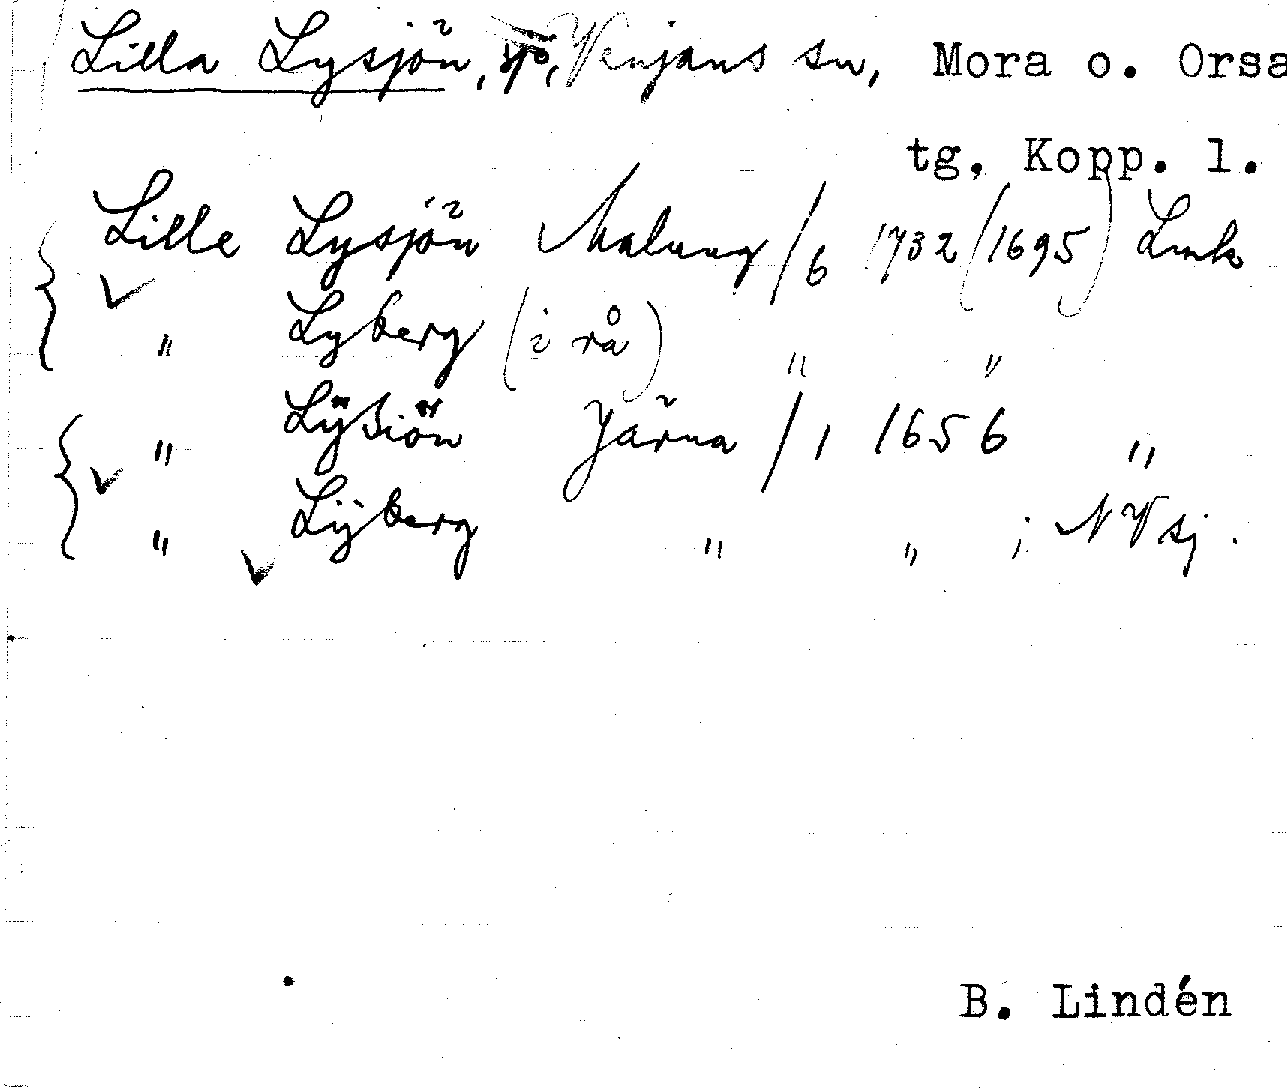 Lilla Lysjön, Venjans sn, Mora o. Orsa
tg. Kopp. l.
Lille Lysjön Malung/6 1732 (1695) Lmk
" Lyberg (i rå) " "
" Lÿsiön Järna/1 1656 "
" Lÿberg " " ; N V sj.
B. Lindén